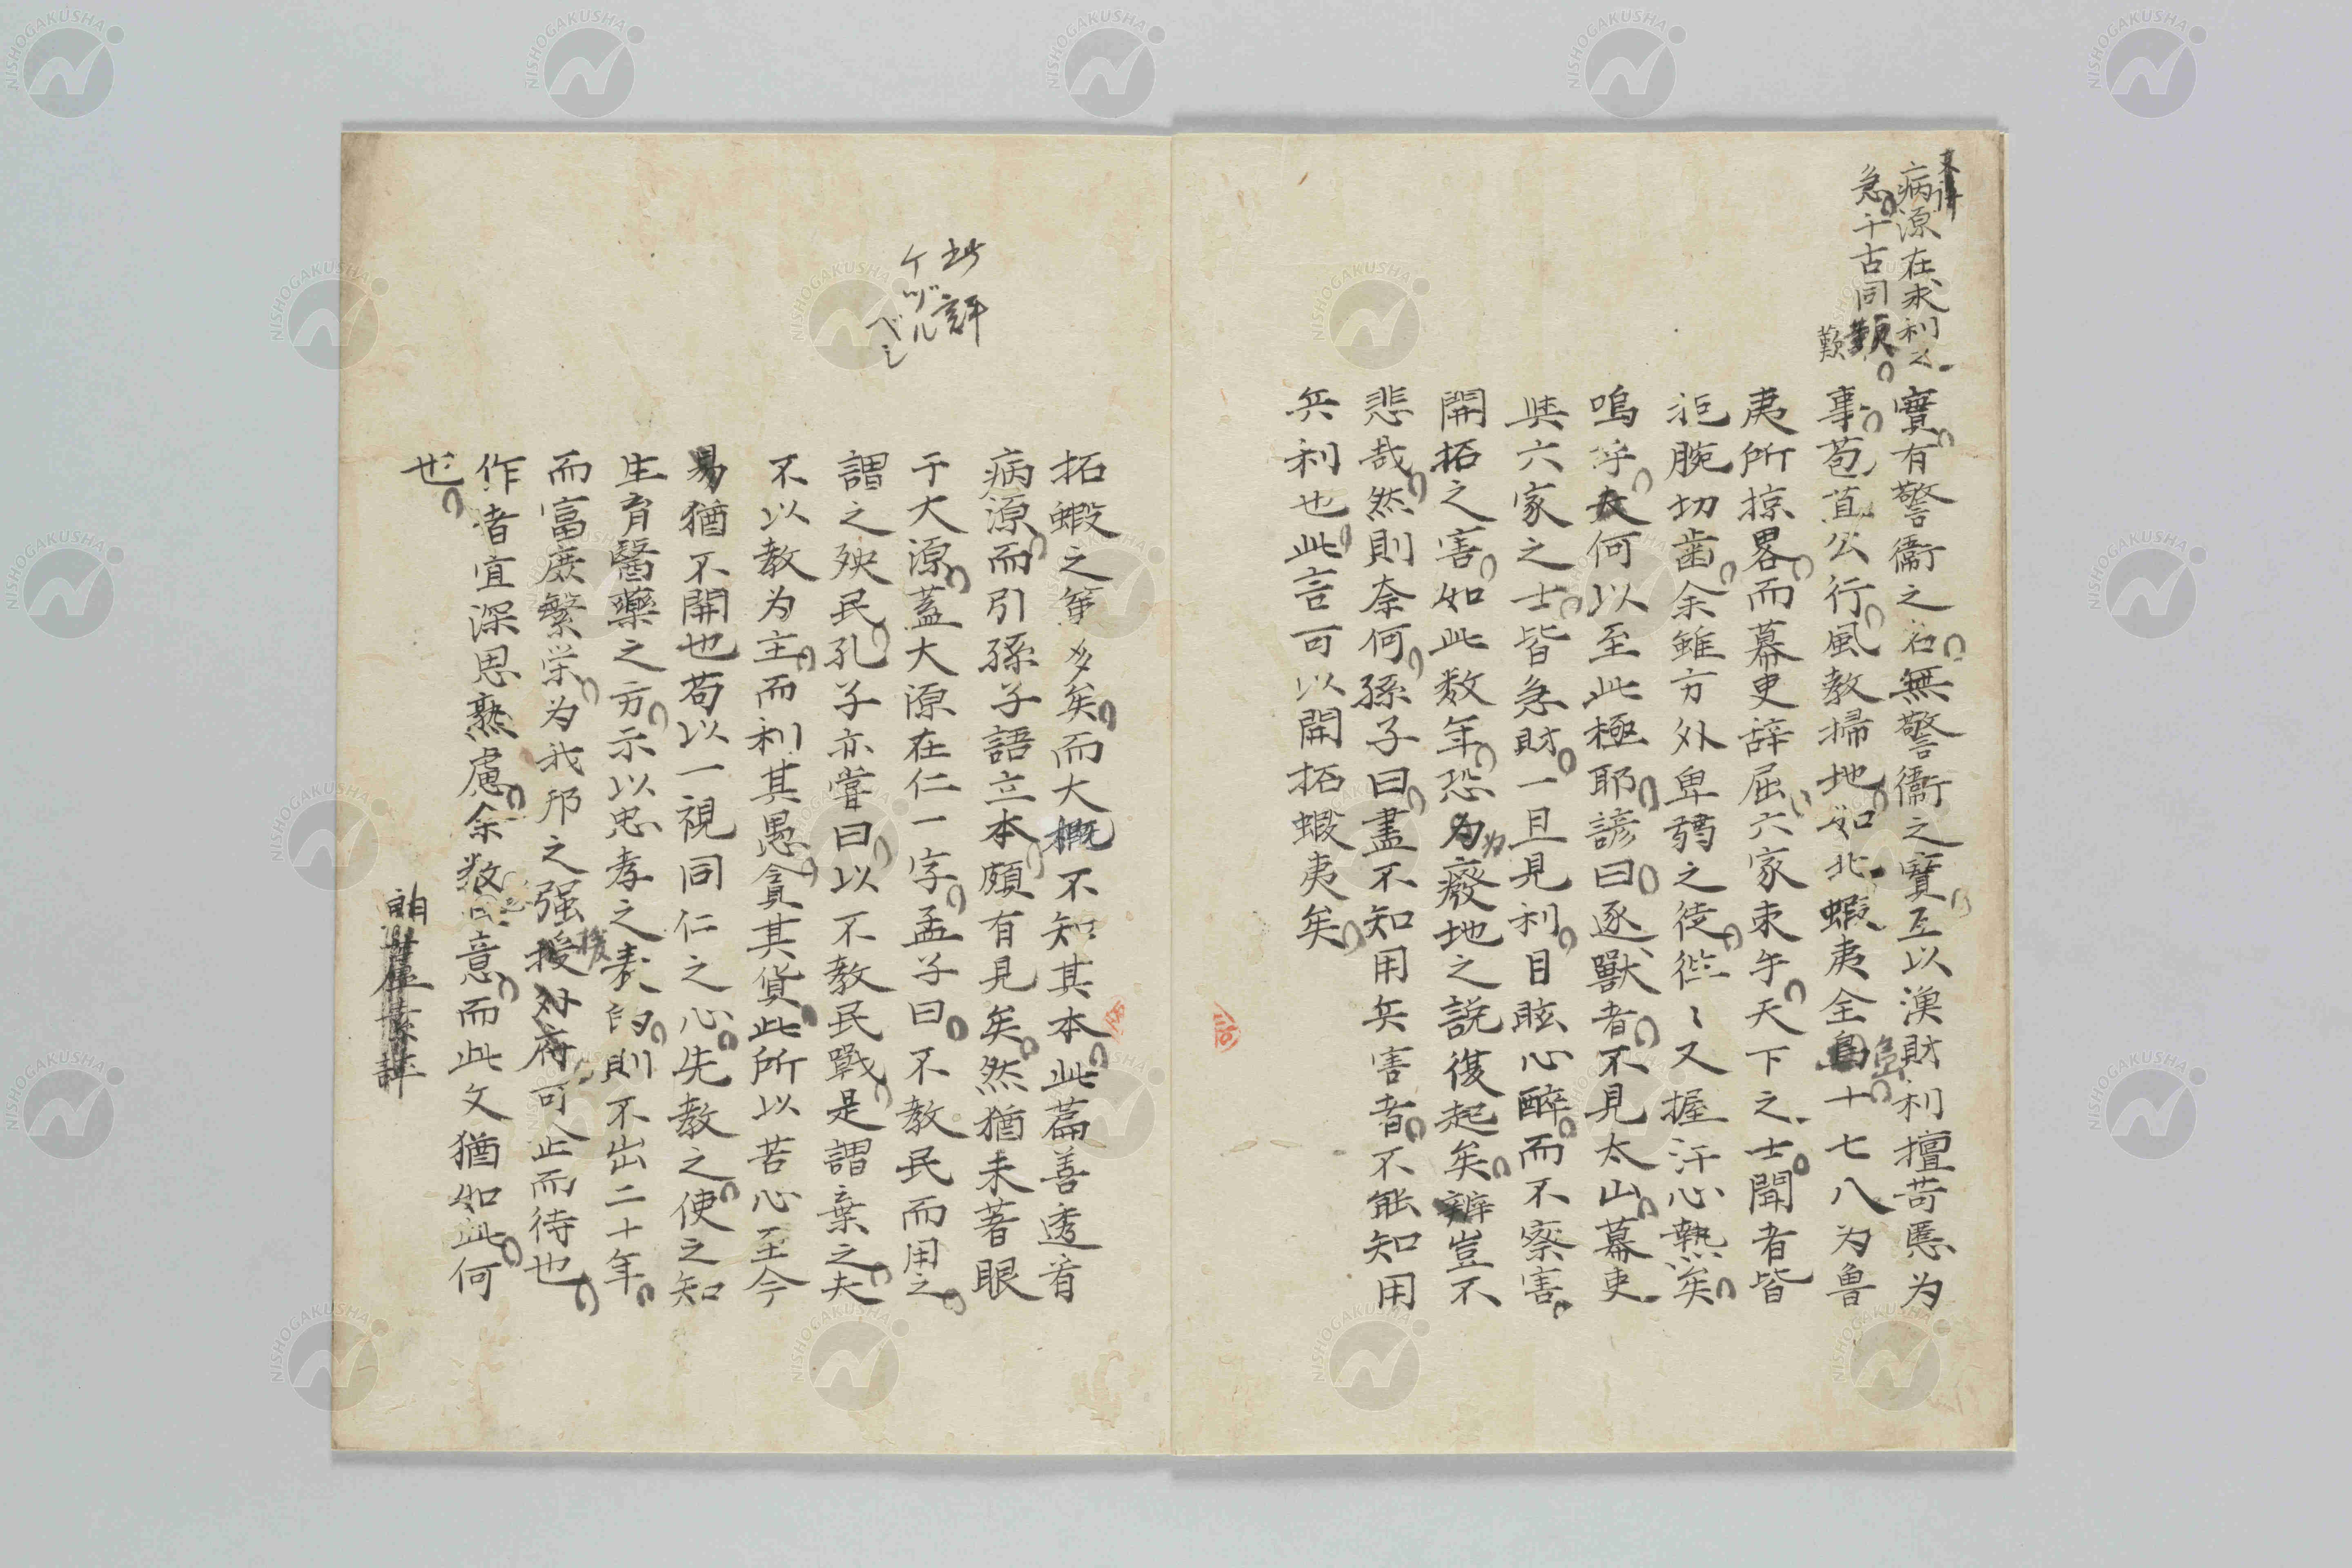 病源在求利之
急千古同歎
歎
實有警衞之名無警衞之寶互以漁財利擅苛慝为
事苞苴公行風教掃地如北蝦夷全島十七八为魯
夷所掠畧而幕吏辞屈六家束手天下之士聞者皆
扼腕切齒余雖方外卑弱之徒徃〻又握汗心熱矣
嗚呼夫何以至此極耶諺曰逐獸者不見太山幕吏
與六家之士皆急財一旦見利目眩心醉而不察害
開拓之害如此数年恐为癈地之説復起矣辨豈不
悲哉然則奈何孫子曰盡不知用兵害者不能知用
兵利也此言可以開拓蝦夷矣
此評
ケヅル
ベシ
拓蝦之策多矣而大概不知其本此篇善透着
病源而引孫子語立本頗有見矣然猶未著眼
于大源蓋大源在仁一字孟子曰不教民而用之
謂之殃民孔子亦嘗曰以不教民戰是謂棄之夫
不以教为主而利其愚貪其貨此所以苦心至今
易猶不開也苟以一視同仁之心先教之使之知
生育醫藥之方示以忠孝之教的則不出二十年
而富庶繁栄为我邦之强援外府可企而待也
作者宜深思熟慮余数 意而此文猶如此何
也